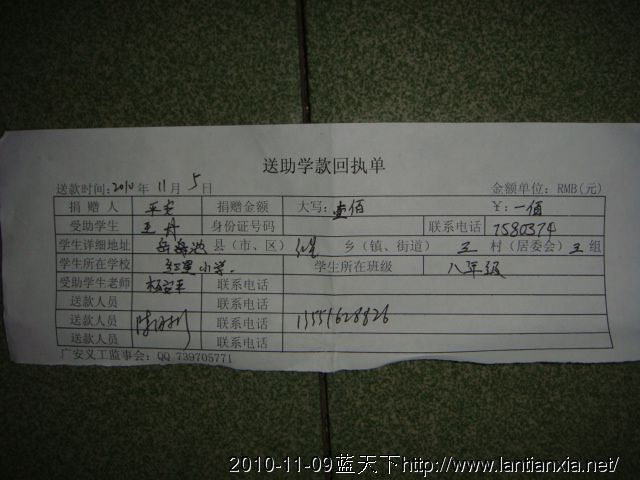 送助学款回执单
送款时间:2010 年 11 月 5 日 金额单位: RMB(元)
捐赠人 平安 捐赠金额 大写: 壹佰 ¥: 一佰
受助学生 王丹 身份证号码 联系电话 7580374
学生详细地址 岳池 县(市、区) 乡(镇、街道) 村(居委会) 组
学生所在学校 小学. 学生所在班级 八年级
受助学生老师 联系电话
送款人员 联系电话
送款人员 联系电话 13551628826
送款人员 联系电话
广安义工监事会: QQ 739705771
2010-11-09蓝天下http://www.lantianxia.net/